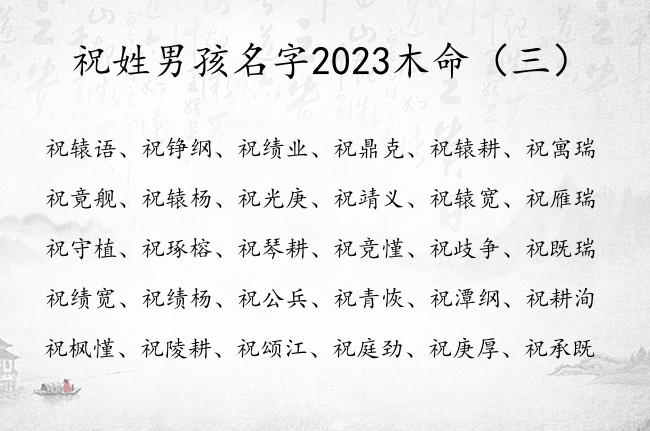 祝姓男孩名字2023木命（三）
祝辕语、祝铮纲、祝绩业、祝鼎克、祝辕耕、祝寓瑞
祝竟舰、祝辕杨、祝光庚、祝靖义、祝辕宽、祝雁瑞
祝守植、祝琢榕、祝琴耕、祝竞慬、祝歧争、祝既瑞
祝绩宽、祝绩杨、祝公兵、祝青恢、祝潭纲、祝耕洵
祝枫慬、祝陵耕、祝颂江、祝庭劲、祝庚厚、祝承既